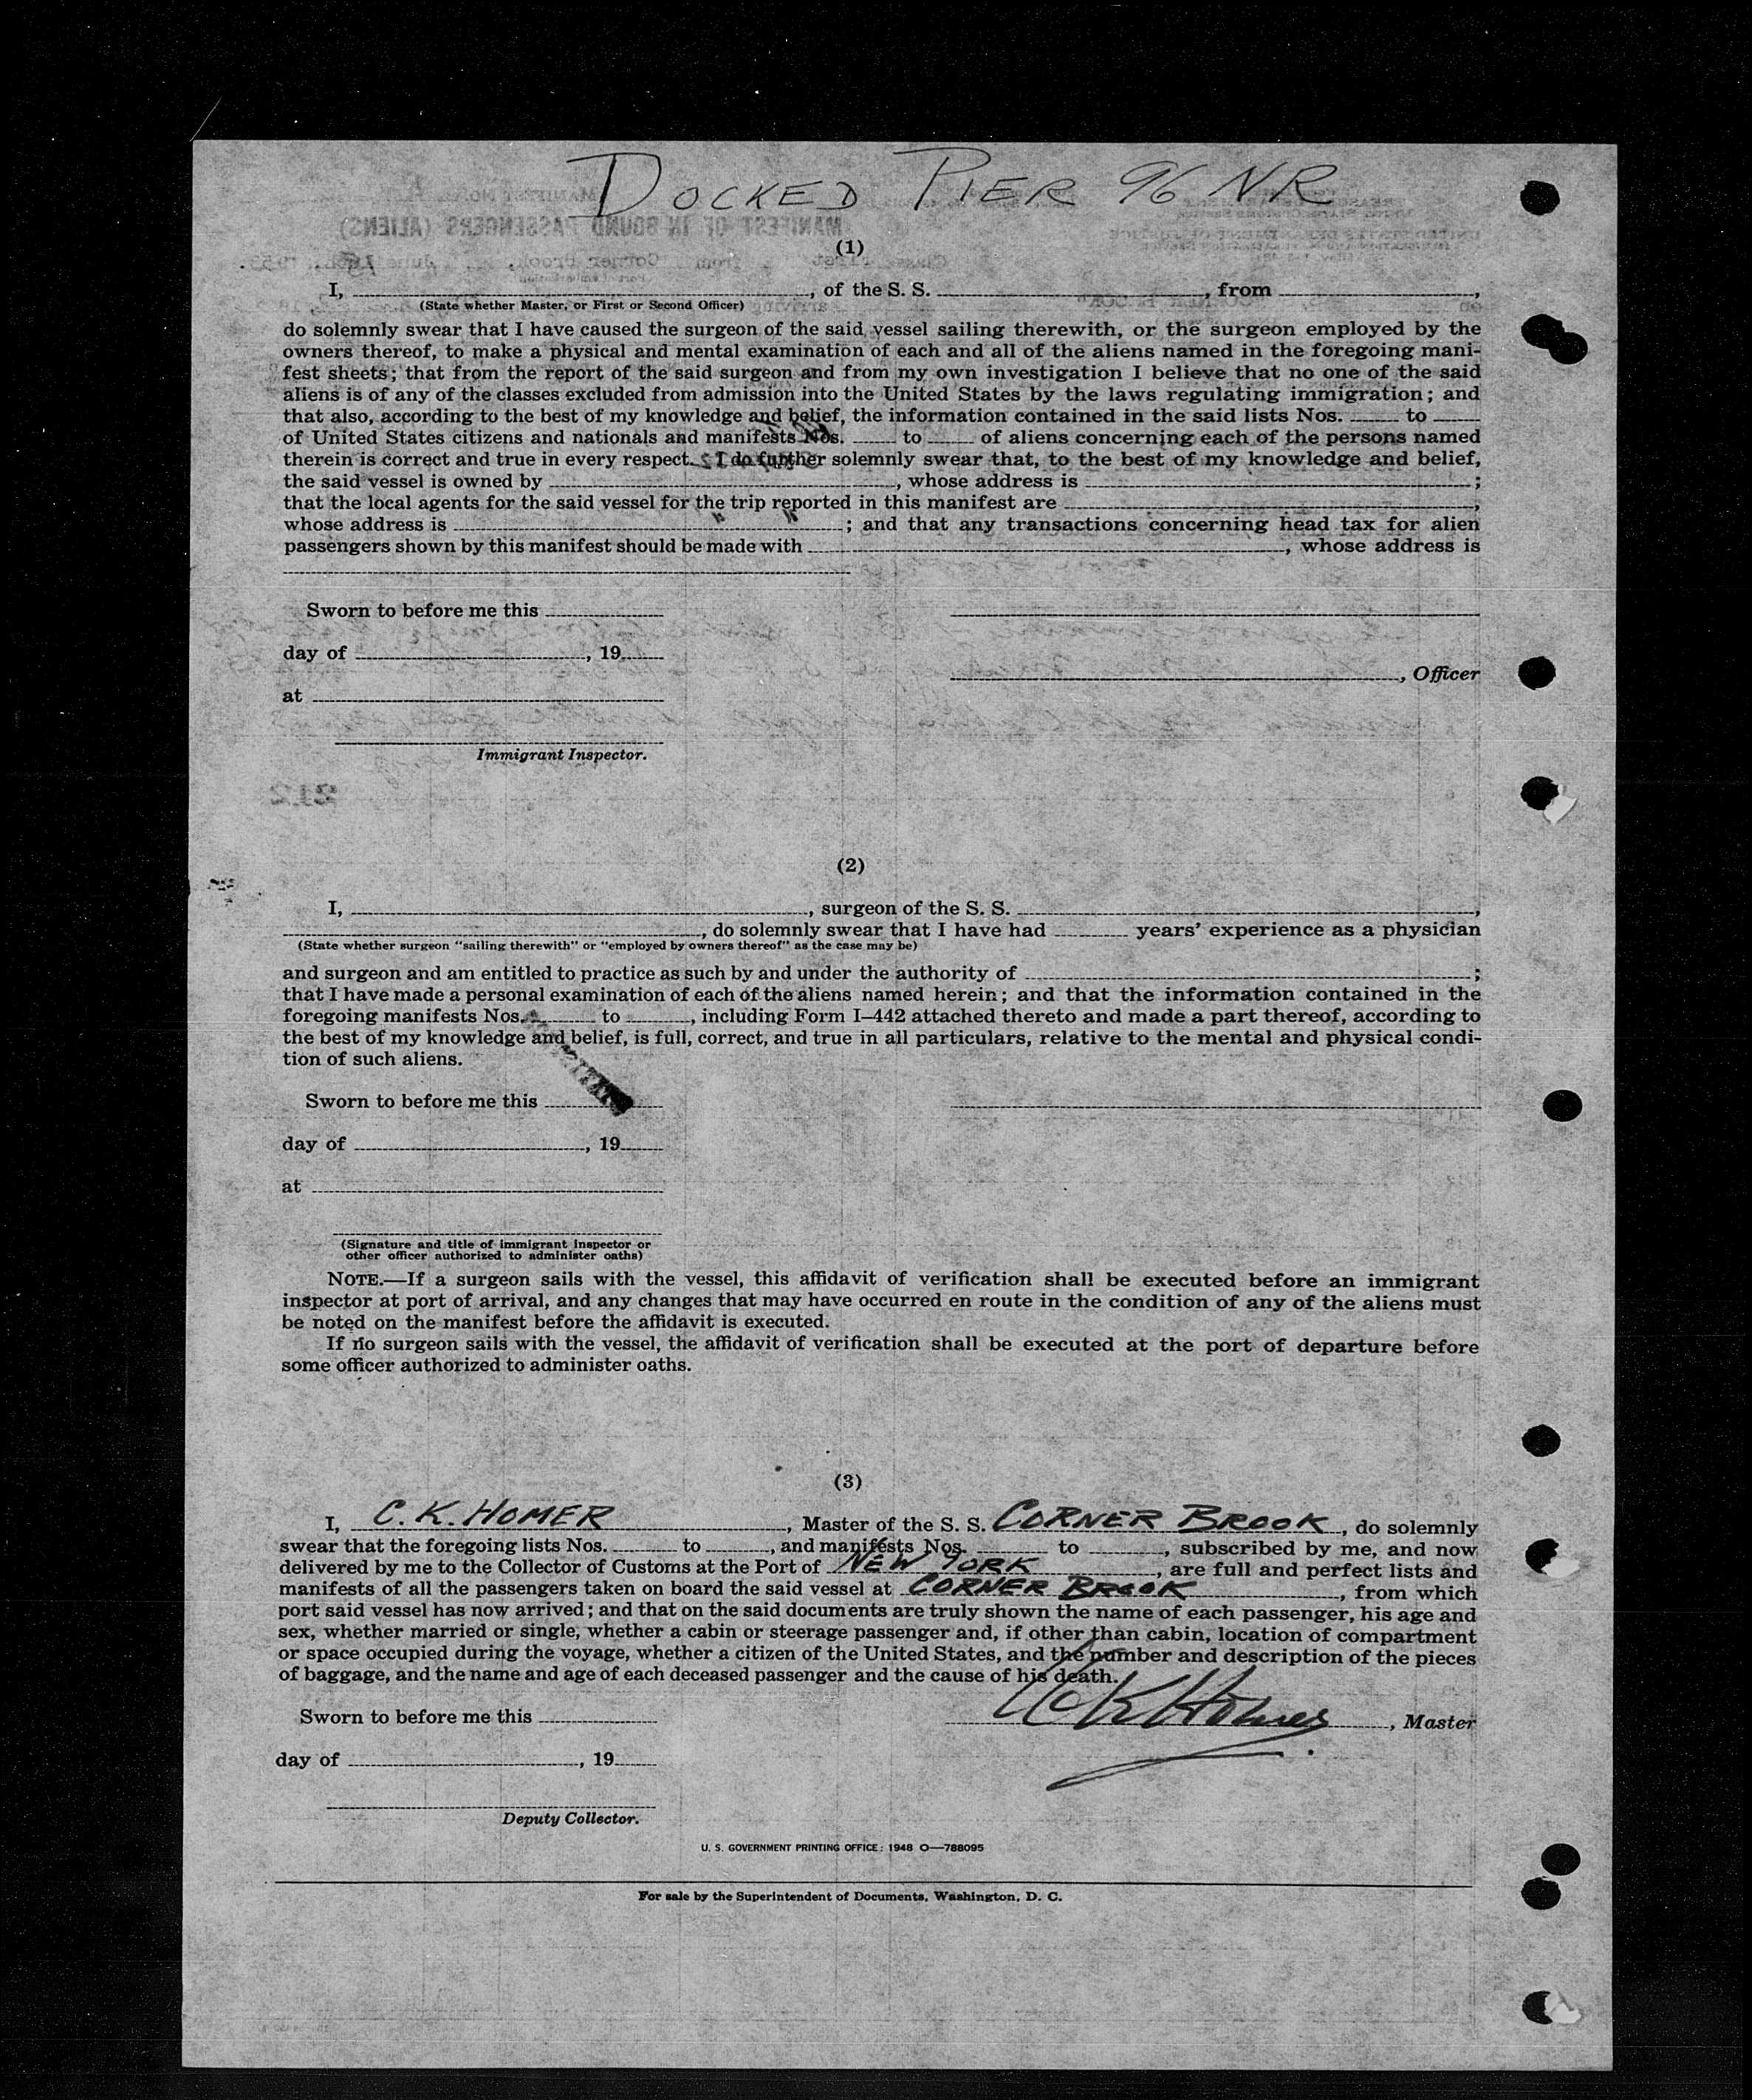 DOCKED PIER 96 NR
MANIFEST OF IN BOUND PASSENGERS (ALIENS)
(1)
I, , of the S. S. , from ,
(State whether Master, or First or Second Officer)
do solemnly swear that I have caused the surgeon of the said vessel sailing therewith, or the surgeon employed by the
owners thereof, to make a physical and mental examination of each and all of the aliens named in the foregoing mani-
fest sheets; that from the report of the said surgeon and from my own investigation I believe that no one of the said
aliens is of any of the classes excluded from admission into the United States by the laws regulating immigration; and
that also, according to the best of my knowledge and belief, the information contained in the said lists Nos. to
of United States citizens and nationals and manifests Nos. to of aliens concerning each of the persons named
therein is correct and true in every respect. I do further solemnly swear that, to the best of my knowledge and belief,
the said vessel is owned by , whose address is ;
that the local agents for the said vessel for the trip reported in this manifest are ,
whose address is ; and that any transactions concerning head tax for alien
passengers shown by this manifest should be made with , whose address is
Sworn to before me this
day of , 19
, Officer
at
Immigrant Inspector.
212
(2)
I, , surgeon of the S. S. ,
, do solemnly swear that I have had years' experience as a physician
(State whether surgeon "sailing therewith" or "employed by owners thereof" as the case may be)
and surgeon and am entitled to practice as such by and under the authority of ;
that I have made a personal examination of each of the aliens named herein; and that the information contained in the
foregoing manifests Nos. to , including Form I-442 attached thereto and made a part thereof, according to
the best of my knowledge and belief, is full, correct, and true in all particulars, relative to the mental and physical condi-
tion of such aliens.
Sworn to before me this
day of , 19
at
(Signature and title of immigrant inspector or
other officer authorized to administer oaths)
NOTE.—If a surgeon sails with the vessel, this affidavit of verification shall be executed before an immigrant
inspector at port of arrival, and any changes that may have occurred en route in the condition of any of the aliens must
be noted on the manifest before the affidavit is executed.
If no surgeon sails with the vessel, the affidavit of verification shall be executed at the port of departure before
some officer authorized to administer oaths.
(3)
I, C. K. HOMER , Master of the S. S. CORNER BROOK , do solemnly
swear that the foregoing lists Nos. to , and manifests Nos. to , subscribed by me, and now
delivered by me to the Collector of Customs at the Port of NEW YORK , are full and perfect lists and
manifests of all the passengers taken on board the said vessel at CORNER BROOK , from which
port said vessel has now arrived; and that on the said documents are truly shown the name of each passenger, his age and
sex, whether married or single, whether a cabin or steerage passenger and, if other than cabin, location of compartment
or space occupied during the voyage, whether a citizen of the United States, and the number and description of the pieces
of baggage, and the name and age of each deceased passenger and the cause of his death.
Sworn to before me this
C K Homer , Master
day of , 19
Deputy Collector.
U. S. GOVERNMENT PRINTING OFFICE: 1948 O—788095
For sale by the Superintendent of Documents, Washington, D. C.